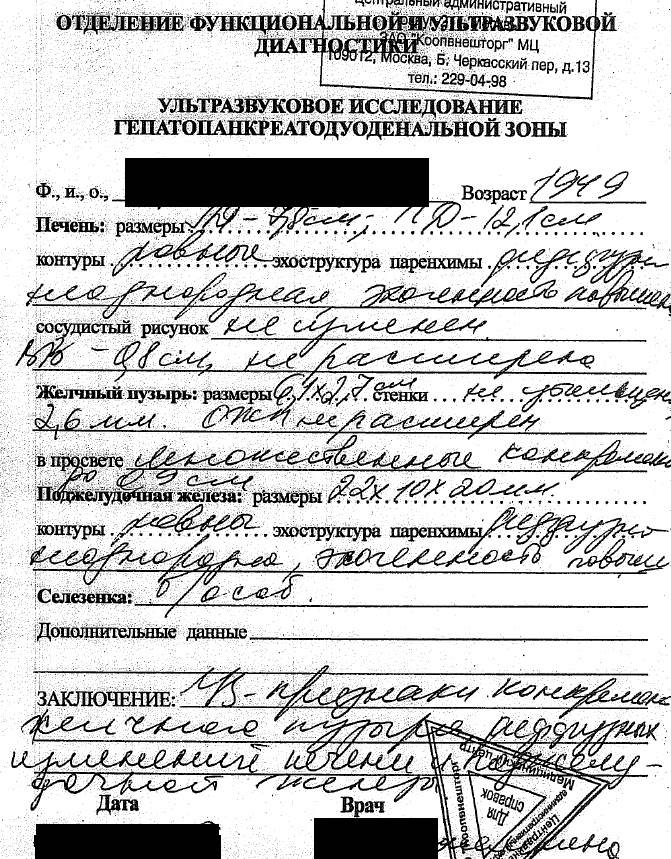 Центральный административный
ОТДЕЛЕНИЕ ФУНКЦИОНАЛЬНОЙ И УЛЬТРАЗВУКОВОЙ
ДИАГНОСТИКИ
ЗАО "Коопвнешторг" МЦ
109012, Москва, Б. Черкасский пер, д.13
тел.: 229-04-98
УЛЬТРАЗВУКОВОЕ ИССЛЕДОВАНИЕ
ГЕПАТОПАНКРЕАТОДУОДЕНАЛЬНОЙ ЗОНЫ
Ф., и., о., Возраст 1949
Печень: размеры ЛД - 7,8 см, ПД - 12,1 см
контуры ровные эхоструктура паренхимы диффузн
неоднородная, эхогенность повышен
сосудистый рисунок не изменен
ВВ - 0,8 см, не расширена
Желчный пузырь: размеры 6,1х2,7 см стенки не утолщен
2,6 мм. ОЖП не расширен
в просвете множественные конкремен
до 0,9 см
Поджелудочная железа: размеры 22х10х20 мм
контуры ровны эхоструктура паренхимы диффузно
неоднородна, эхогенность повыш
Селезенка: б/особ.
Дополнительные данные
ЗАКЛЮЧЕНИЕ: УЗ-признаки конкремен
желчного пузыря, диффузных
изменений печени и поджелу-
дочной железы
Дата Врач
Для
справок